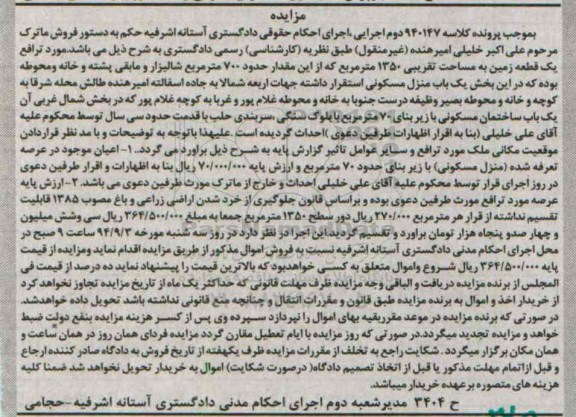 مزایده
بموجب پرونده کلاسه ۹۴۰۱۴۷ دوم اجرایی ،اجرای احکام حقوقی دادگستری آستانه اشرفیه حکم به دستور فروش ماترک
مرحوم علی اکبر خلیلی امیرهنده (غیرمنقول) طبق نظریه (کارشناسی) رسمی دادگستری به شرح ذیل می باشد.مورد ترافع
یک قطعه زمین به مساحت تقریبی ۱۳۵۰ مترمربع که از این مقدار حدود ۷۰۰ مترمربع شالیزار و مابقی پشته و خانه ومحوطه
بوده که در این بخش یک باب منزل مسکونی استقرار داشته جهات اربعه شمالا به جاده اسفالته امیرهنده طالش محله شرقا به
کوچه و خانه و محوطه بصیر وظیفه درست جنوبا به خانه و محوطه غلام پور و غربا به کوچه غلام پور که در بخش شمال غربی آن
یک باب ساختمان مسکونی با زیر بنای ۷۰ مترمربع با بلوک سنگی ،سربندی حلب با قدمت حدود سی سال توسط محکوم علیه
آقای علی خلیلی (بنا به اقرار اظهارات طرفین دعوی )احداث گردیده است .علیهذا باتوجه به توضیحات و با مد نظر قراردادن
موقعیت مکانی ملک مورد ترافع و سایر عوامل تاثیر گزارش پایه به شرح ذیل براورد می گردد.. ۱-اعیان موجود در عرصه
تعرفه شده (منزل مسکونی) با زیر بنای حدود ۷۰ مترمربع و ارزش پایه ۷۰/۰۰۰/۰۰۰ ریال بنا به اظهارات و اقرار طرفین دعوی
در روز اجرای قرار توسط محکوم علیه آقای علی خلیلی احداث و خارج از ماترک مورث طرفین دعوی می باشد. ۲-ارزش پایه
عرصه مورد ترافع مورث طرفین دعوی بوده و براساس قانون جلوگیری از خرد شدن اراضی زراعی و باغ مصوب ۱۳۸۵ قابلیت
تقسیم نداشته از قرار هر مترمربع ۲۷۰/۰۰۰ ریال دور سطح ۱۳۵۰ مترمربع جمعا به مبلغ ۳۶۴/۵۰۰/۰۰۰ ریال سی وشش میلیون
و چهار صدو پنجاه هزار تومان براورد و تعمیم گردید این اجرا در نظر دارد در روز سه شنبه مورخه ۹۴/۹/۳ ساعت ۹ صبح در
محل اجرای احکام مدنی دادگستری آستانه اشرفیه نسبت به فروش اموال مذکور از طریق مزایده اقدام نماید ومزایده از قیمت
پایه ۳۶۴/۵۰۰/۰۰۰ ریال شروع واموال متعلق به کسی خواهدبود که بالاترین قیمت را پیشنهاد نماید ده درصد از قیمت فی
المجلس از برنده مزایده دریافت و الباقی وجه مزایده ظرف مهلت قانونی که حداکثر یک ماه از تاریخ مزایده تجاوز نخواهد کرد
از خریدار اخذ و اموال به برنده مزایده طبق قانون و مقررات انتقال و چنانچه منع قانونی نداشته باشد تحویل داده خواهدشد.
در صورتی که برنده مزایده در موعد مقرربقیه بهای اموال را نپردازد سپرده وی پس از کسر هزینه مزایده بنفع دولت ضبط
خواهد و مزایده تجدید میگردد.در صورتی که روز مزایده با ایام تعطیل مقارن گردد مزایده فردای همان روز در همان ساعت و
همان مکان برگزار میگردد . شکایت راجع به تخلف از مقررات مزایده ظرف یکهفته از تاریخ فروش به دادگاه صادر کننده ارجاع
و قبل ازاتمام مهلت مذکور یا قبل از اتخاذ تصمیم دادگاه( درصورت شکایت) اموال به خریدار تحویل نخواهد شد ضمنا کلیه
هزینه های متصوره برعهده خریدار میباشد.
ح ۳۴۰۴ مدیرشعبه دوم اجرای احکام مدنی دادگستری آستانه اشرفیه-حجامی